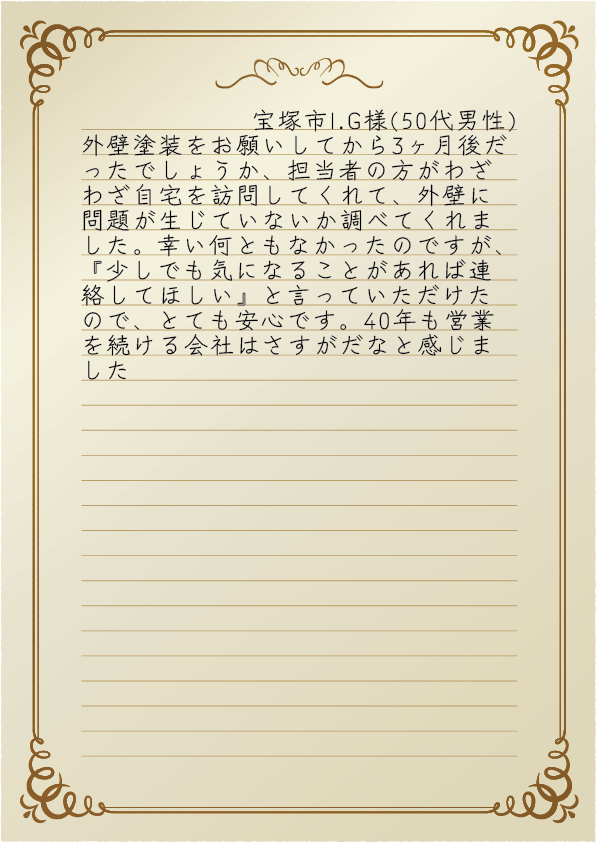 宝塚市I.G様(50代男性)
外壁塗装をお願いしてから3ヶ月後だ
ったでしょうか、担当者の方がわざ
わざ自宅を訪問してくれて、外壁に
問題が生じていないか調べてくれま
した。幸い何ともなかったのですが、
『少しでも気になることがあれば連
絡してほしい』と言っていただけた
ので、とても安心です。40年も営業
を続ける会社はさすがだなと感じま
した